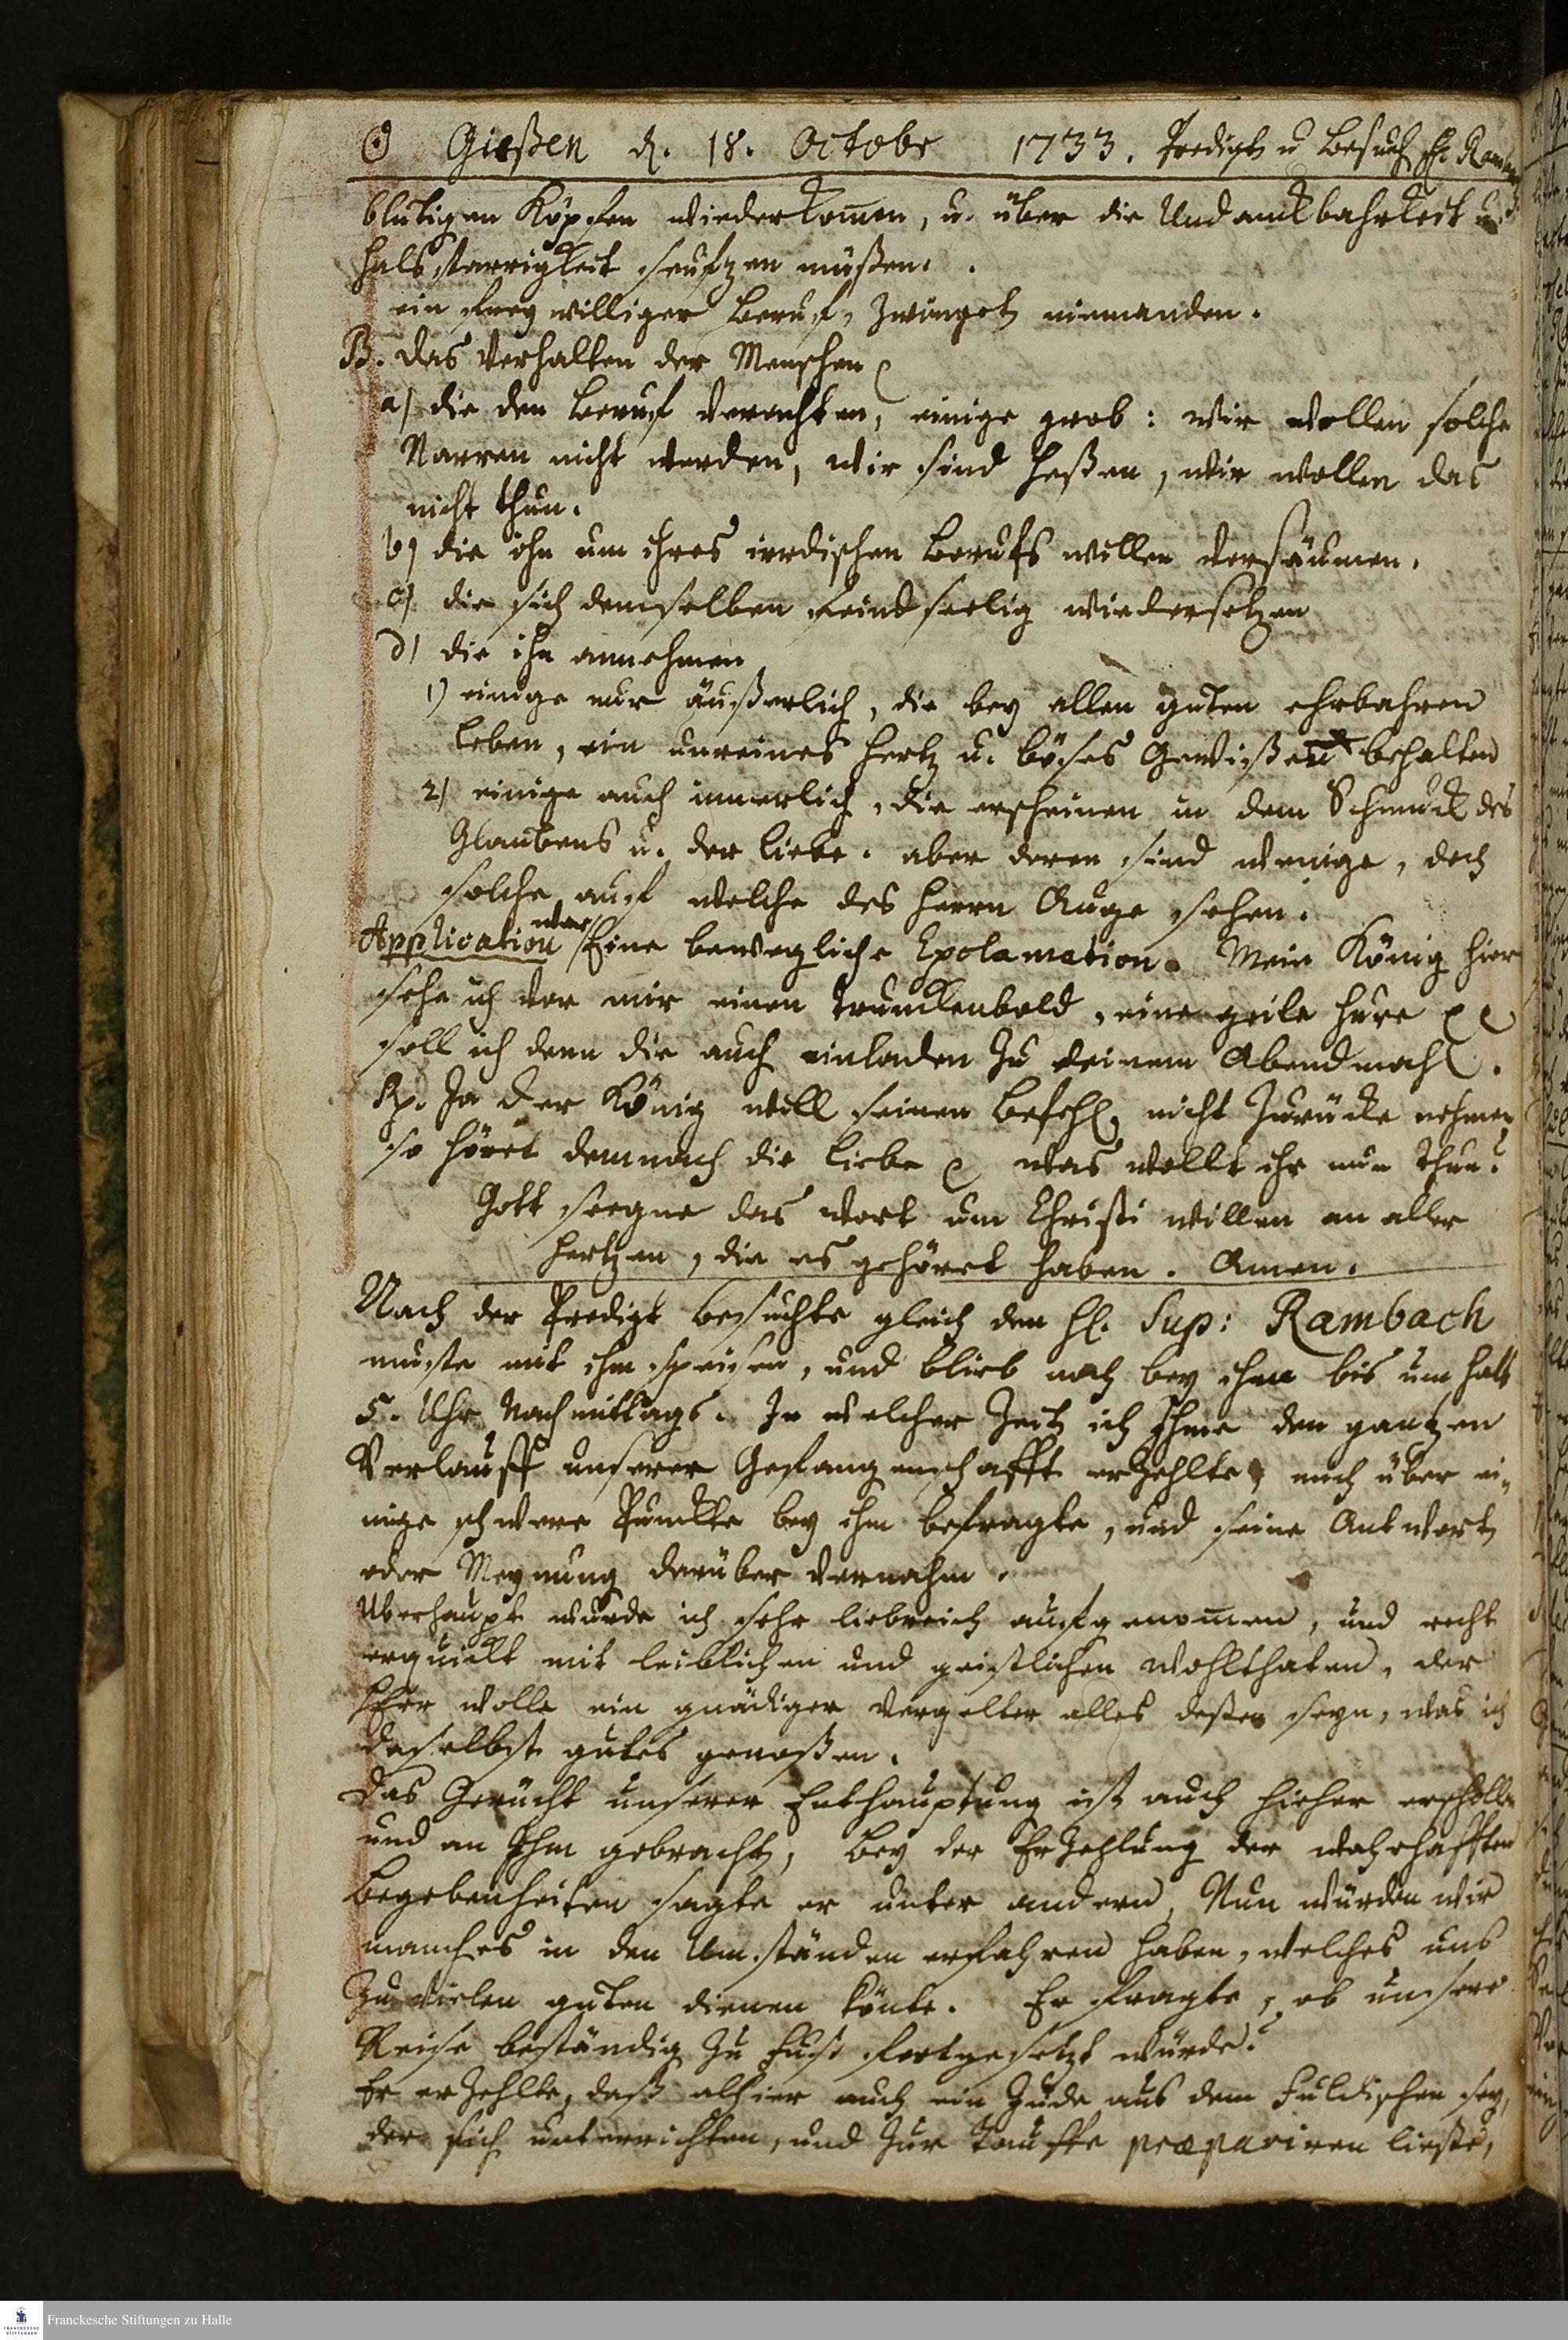 ☉ Gießen d. 18. Octobr 1733. Predigt u Besuch H. Rambach
blutigen Köpfen wiederkom̄en, u. über die Undanckbahrkeit u.
Halsstarrigkeit seufzen müßen.
ein freywilliger Beruf, zwinget niemanden.
B. das Verhalten der Menschen
a) die den Beruf verachten, einige grob: wir wollen solche
Narren nicht werden, wir sind Heßen, wir wollen das
nicht thun.
b) die ihn um ihres irrdischen Berufs willen versäumen.
c) die sich demselben feindseelig wiedersetzen
d) die ihn annehmen
1) einige nur äußerlich, die bey allen guten ehrbahren
Leben, ein unreines Hertz u. böses Gewißen behalten
2) einige auch innerlich, die erscheinen in dem Schmuck des
Glaubens u. der Liebe. aber deren sind wenige, doch
solche auf welche des Herrn Auge sehen.
war
Application Eine bewegliche Exclamation. Mein König hier
sehe ich vor mir einen Trunckenbold, eine geile Hure
soll ich denn die auch einladen zu deinem Abendmahl.
Rp. Ja der König will seinen Befehl nicht zurücke nehmen
so höret demnach die Liebe was wollt ihr nun thun?
Gott seegne das Wort um Christi willen an aller
Hertzen, die es gehöret haben. Amen.
Nach der Predigt besuchte gleich den H. Sup: Rambach
muste mit ihm speisen, und blieb noch bey ihm bis um halb
5. Uhr Nachmittags. In welcher Zeit ich Ihme den gantzen
Verlauff unserer Gefangenschafft erzehlte, auch über ei-
nige schwere Punckte bey ihm befragte, und seine Antwort
oder Meynung darüber vernahm.
Uberhaupt wurde ich sehr liebreich aufgenom̄en, und recht
erquickt mit leiblichen und geistlichen Wohlthaten, der
HErr wolle ein gnädiger Vergelter alles deßen seyn, was ich
daselbst gutes genoßen.
Das Gerücht unserer Enthauptung ist auch hieher erschollen
und an Ihm gebracht, Bey der Erzehlung der wahrhafften
Begebenheiten sagte er unter andern, Nun würden wir
manches in den Umständen erfahren haben, welches uns
zu vielen guten dienen könte. Er fragte, ob unsere
Reise beständig zu Fuß fortgesetzt würde?
Er erzehlte, daß alhier auch ein Jude aus dem Fuldischen sey,
der sich unterrichten, und zur Tauffe præpariren ließe,
Franckesche Stiftungen zu Halle